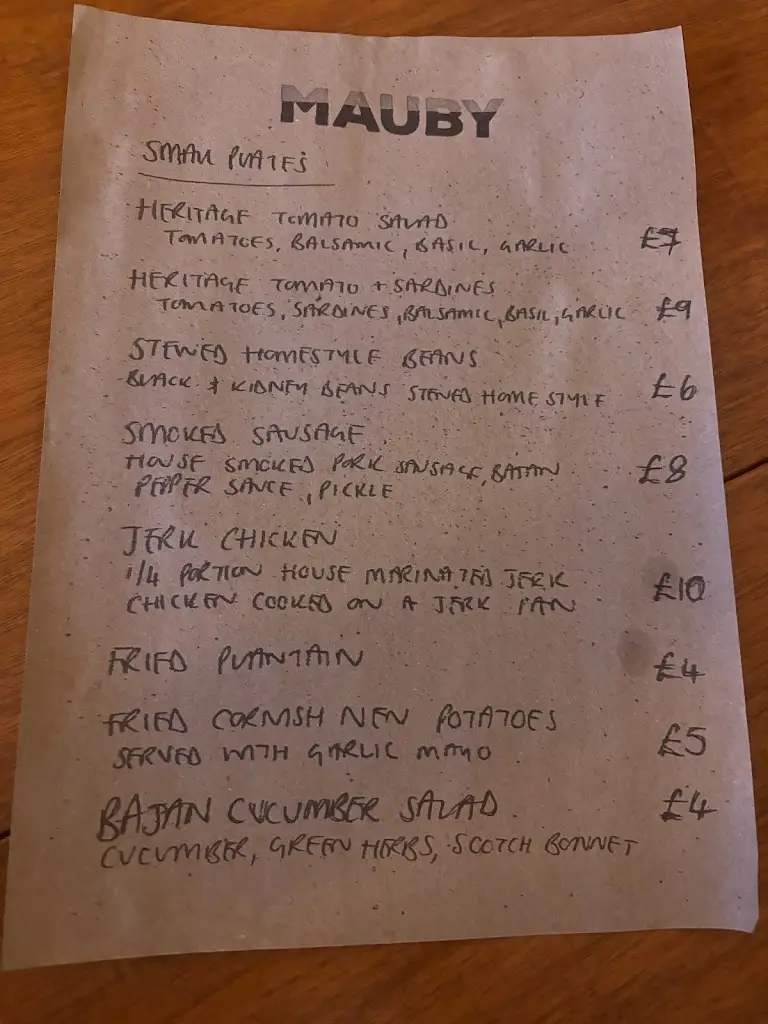 MAUBY
SMALL PLATES
HERITAGE TOMATO SALAD
TOMATOES, BALSAMIC, BASIL, GARLIC £7
HERITAGE TOMATO + SARDINES
TOMATOES, SARDINES, BALSAMIC, BASIL, GARLIC £9
STEWED HOMESTYLE BEANS
BLACK & KIDNEY BEANS STEWED HOME STYLE £6
SMOKED SAUSAGE
HOUSE SMOKED PORK SAUSAGE, BAJAN £8
PEPPER SAUCE, PICKLE
JERK CHICKEN
1/4 PORTION HOUSE MARINATED JERK £10
CHICKEN COOKED ON A JERK PAN
FRIED PLANTAIN £4
FRIED CORNISH NEW POTATOES
SERVED WITH GARLIC MAYO £5
BAJAN CUCUMBER SALAD £4
CUCUMBER, GREEN HERBS, SCOTCH BONNET